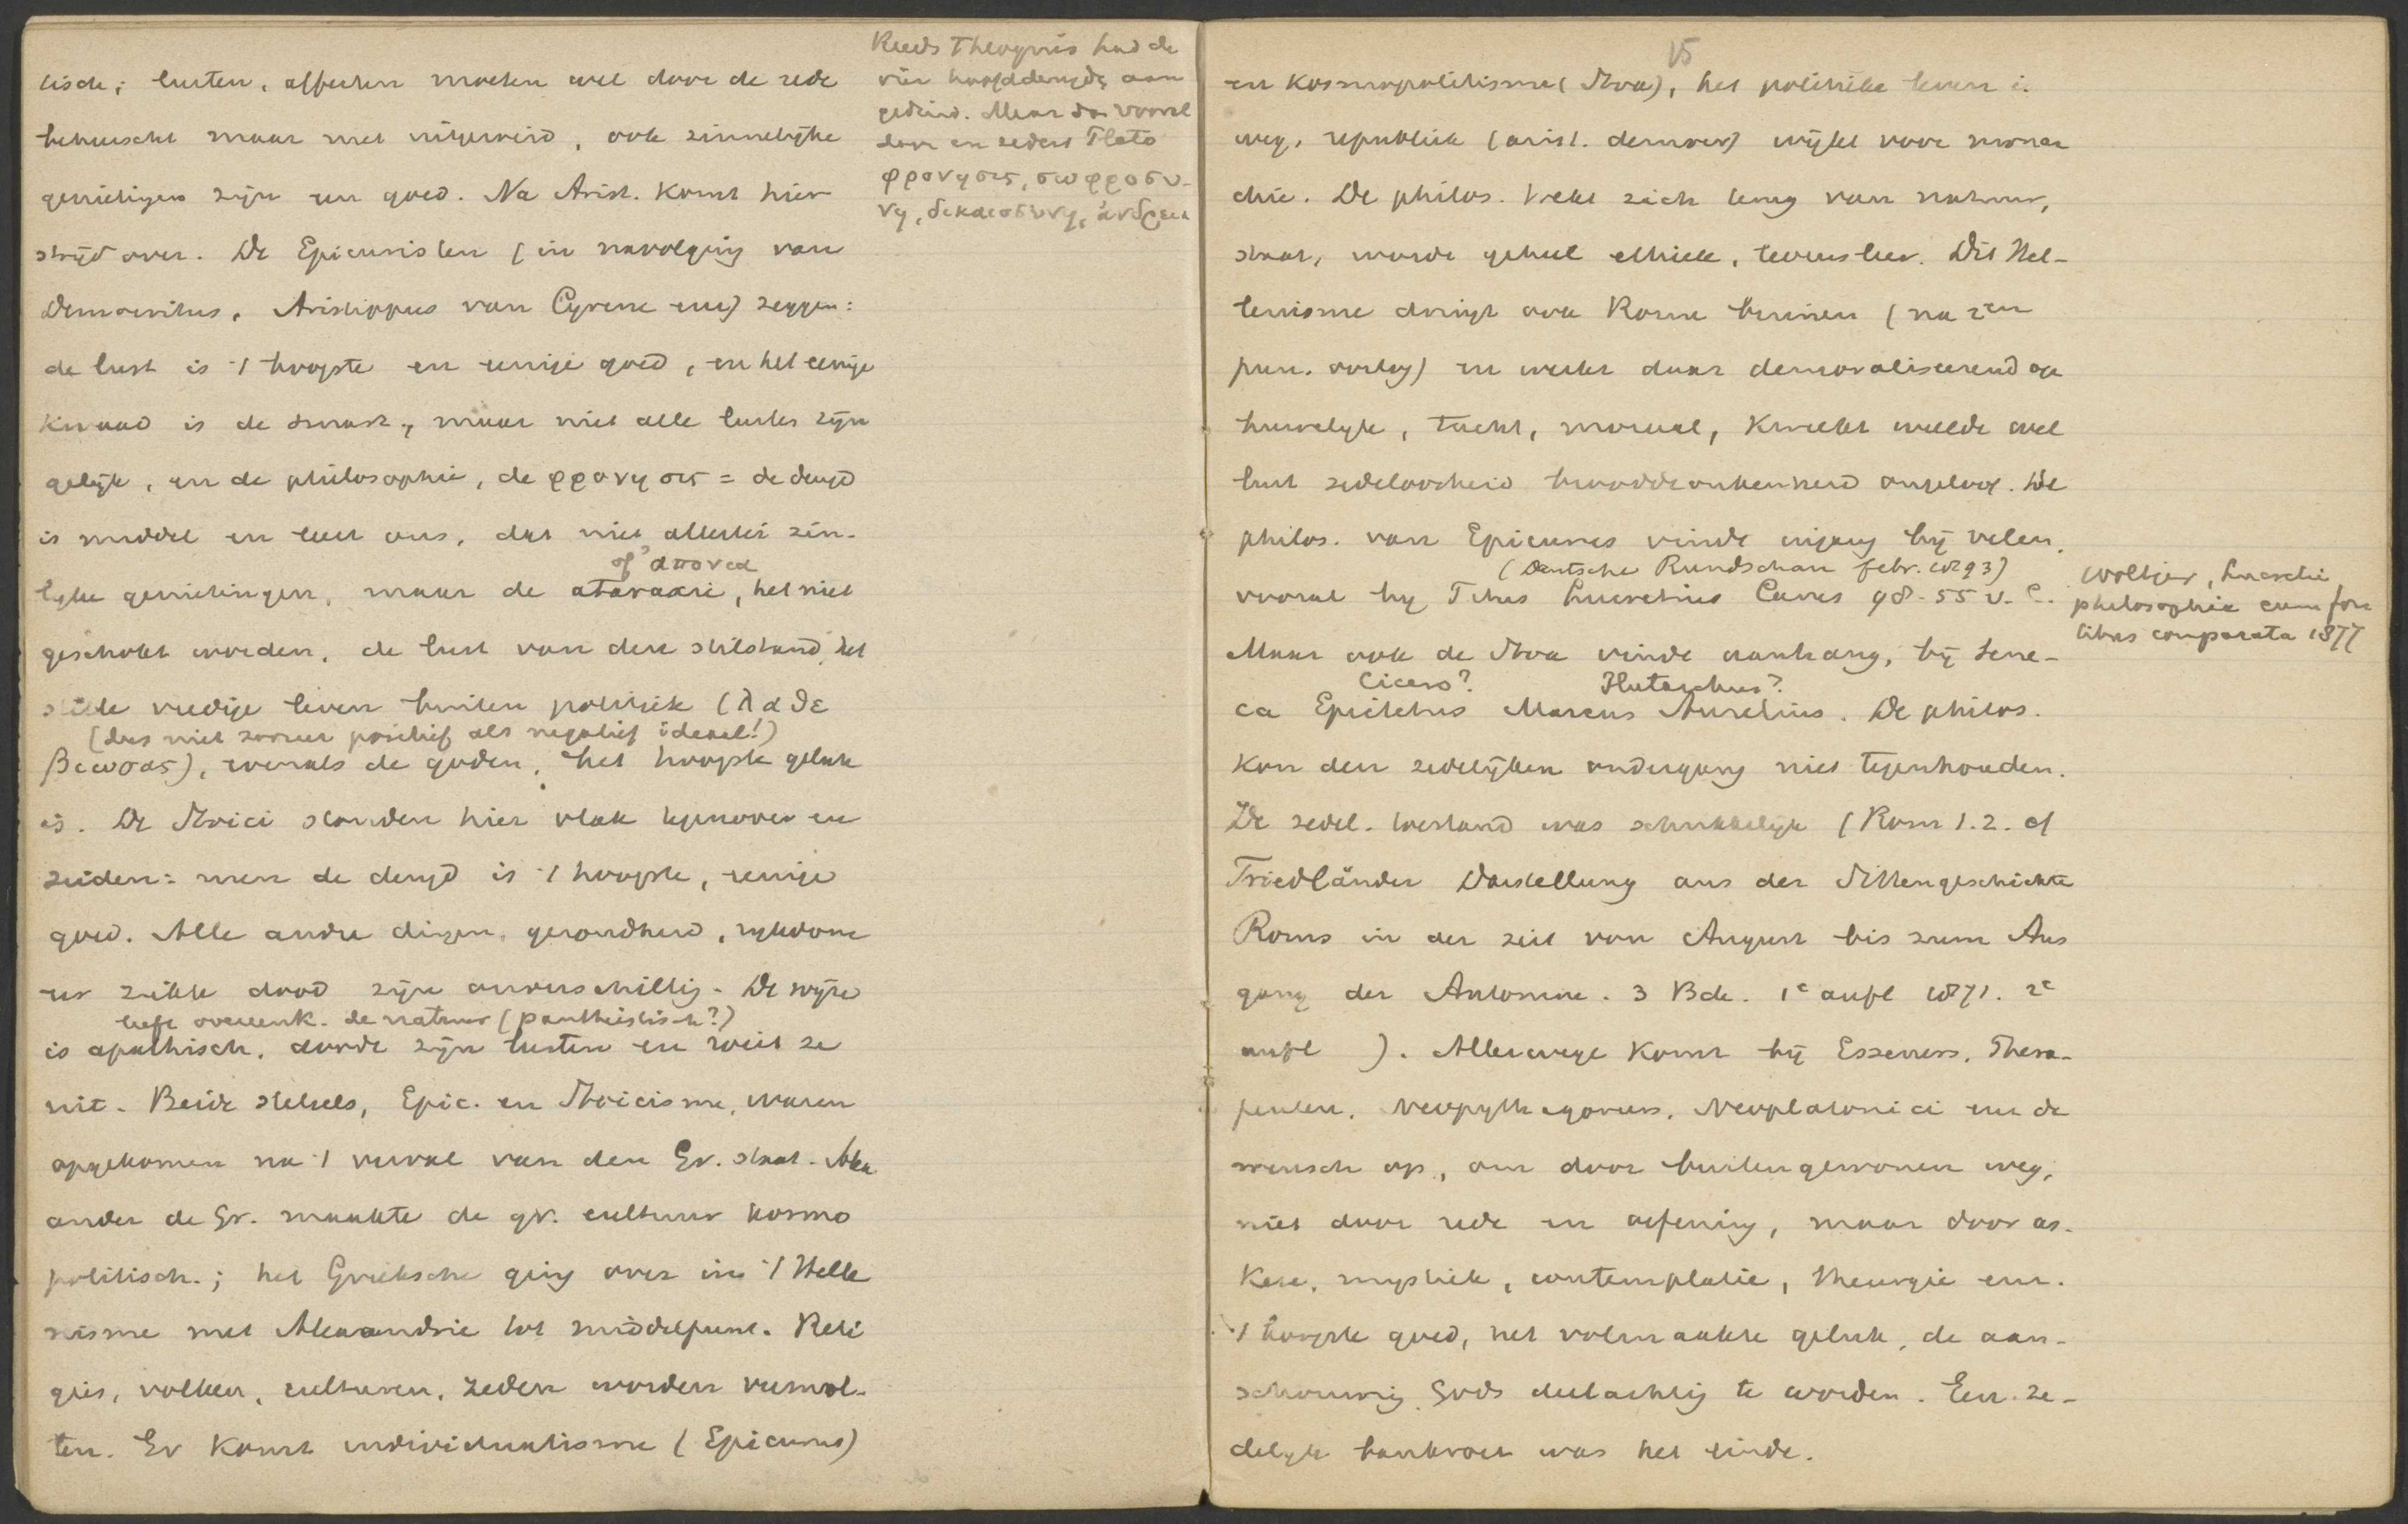 tisch; lusten, affecten moeten wel door de rede
beheerscht maar niet uitgeroeid, ook zinnelijke
genietingen zijn een goed. Na Arist. komt hier
strijd over. De Epicuristen (in navolging van
Democritus, Aristippus van Cyrene enz) zeggen:
de lust is 't hoogste en eenige goed, en het eenige
kwaad is de smart, maar niet alle lusten zijn
gelijk, en de philosophie, de φρονησις = de deugd
is middel en leert ons, dat niet allerlei zin-
of ἀπονια
lijke genietingen, maar de ataraxie, het niet
geschokt worden, de lust van den stilstand, het
stille vredige leven buiten politiek (λαθε
(dus niet zoozeer positief als negatief ideaal!)
βιωσας), evenals de goden, het hoogste geluk
is. De Stoici stonden hier vlak tegenover en
zeiden: neen de deugd is 't hoogste, eenige
goed. Alle andre dingen, gezondheid, rijkdom
eer ziekte dood zijn onverschillig. De wijze
leeft overeenk. de natuur (pantheistisch?)
is apathisch, doode zijn lusten en roeit ze
uit. Beide stelsels, Epic. en Stoicisme, waren
opgekomen na 't verval van den Gr. staat. Alex
ander de Gr. maakte de gr. cultuur kosmo
politisch.; het Grieksche ging over in 't Helle
nisme met Alexandrie tot middelpunt. Reli
gies, volken, culturen, zeden worden versmol-
ten. Er komt individualisme (Epicurus)
Reeds Theognis had de
vier hoofddeugden aan
geduid. Maar dan vooral
door en sedert Plato
φρονησις, σωφροσυ-
νη, δικαιοσυνη, ἀνδρεια
15
en kosmopolitisme (Stoa), het politieke leven is
weg, republiek (arist. democr) wijkt voor monar
chie. De philos. trekt zich terug van natuur,
staat, wordt geheel ethiek, levensleer. Dit Hel-
lenisme dringt ook Rome binnen (na 2en
pun. oorlog) en werkt daar demoraliseerend op
huwelijk, tucht, moraal, kweekt weelde wel
lust zedeloosheid ongeloof. De
philos. van Epicurus vindt ingang bij velen,
(Deutsche Rundschau febr. 1893)
vooral bij Titus Lucretius Carus 98-55 v. C.
Woltjer, Lucretii
philosophia cum fon
tibus comparata 1877
Maar ook de Stoa vindt aanhang, bij Sene-
Cicero? Plutarchus?
ca Epictetus Marcus Aurelius. De philos.
kon den zedelijken ondergang niet tegenhouden.
De zedel. toestand was schrikkelijk (Rom 1.2. cf
Friedländer Darstellung aus der Sittengeschichte
Roms in der zeit von August bis zum Aus
gang der Antonine. 3 Bde. 1e aufl 1871. 2e
aufl ). Allerwege komt bij Esseners, Thera-
peuten, Neopythagoreers, Neoplatonici enz de
wensch op, om door buitengewonen weg,
niet door rede en oefening, maar door as-
kese, mystiek, contemplatie, theurgie enz.
't hoogste goed, het volmaakte geluk, de aan-
schouwing Gods deelachtig te worden. Een ze-
delijk bankroet was het einde.